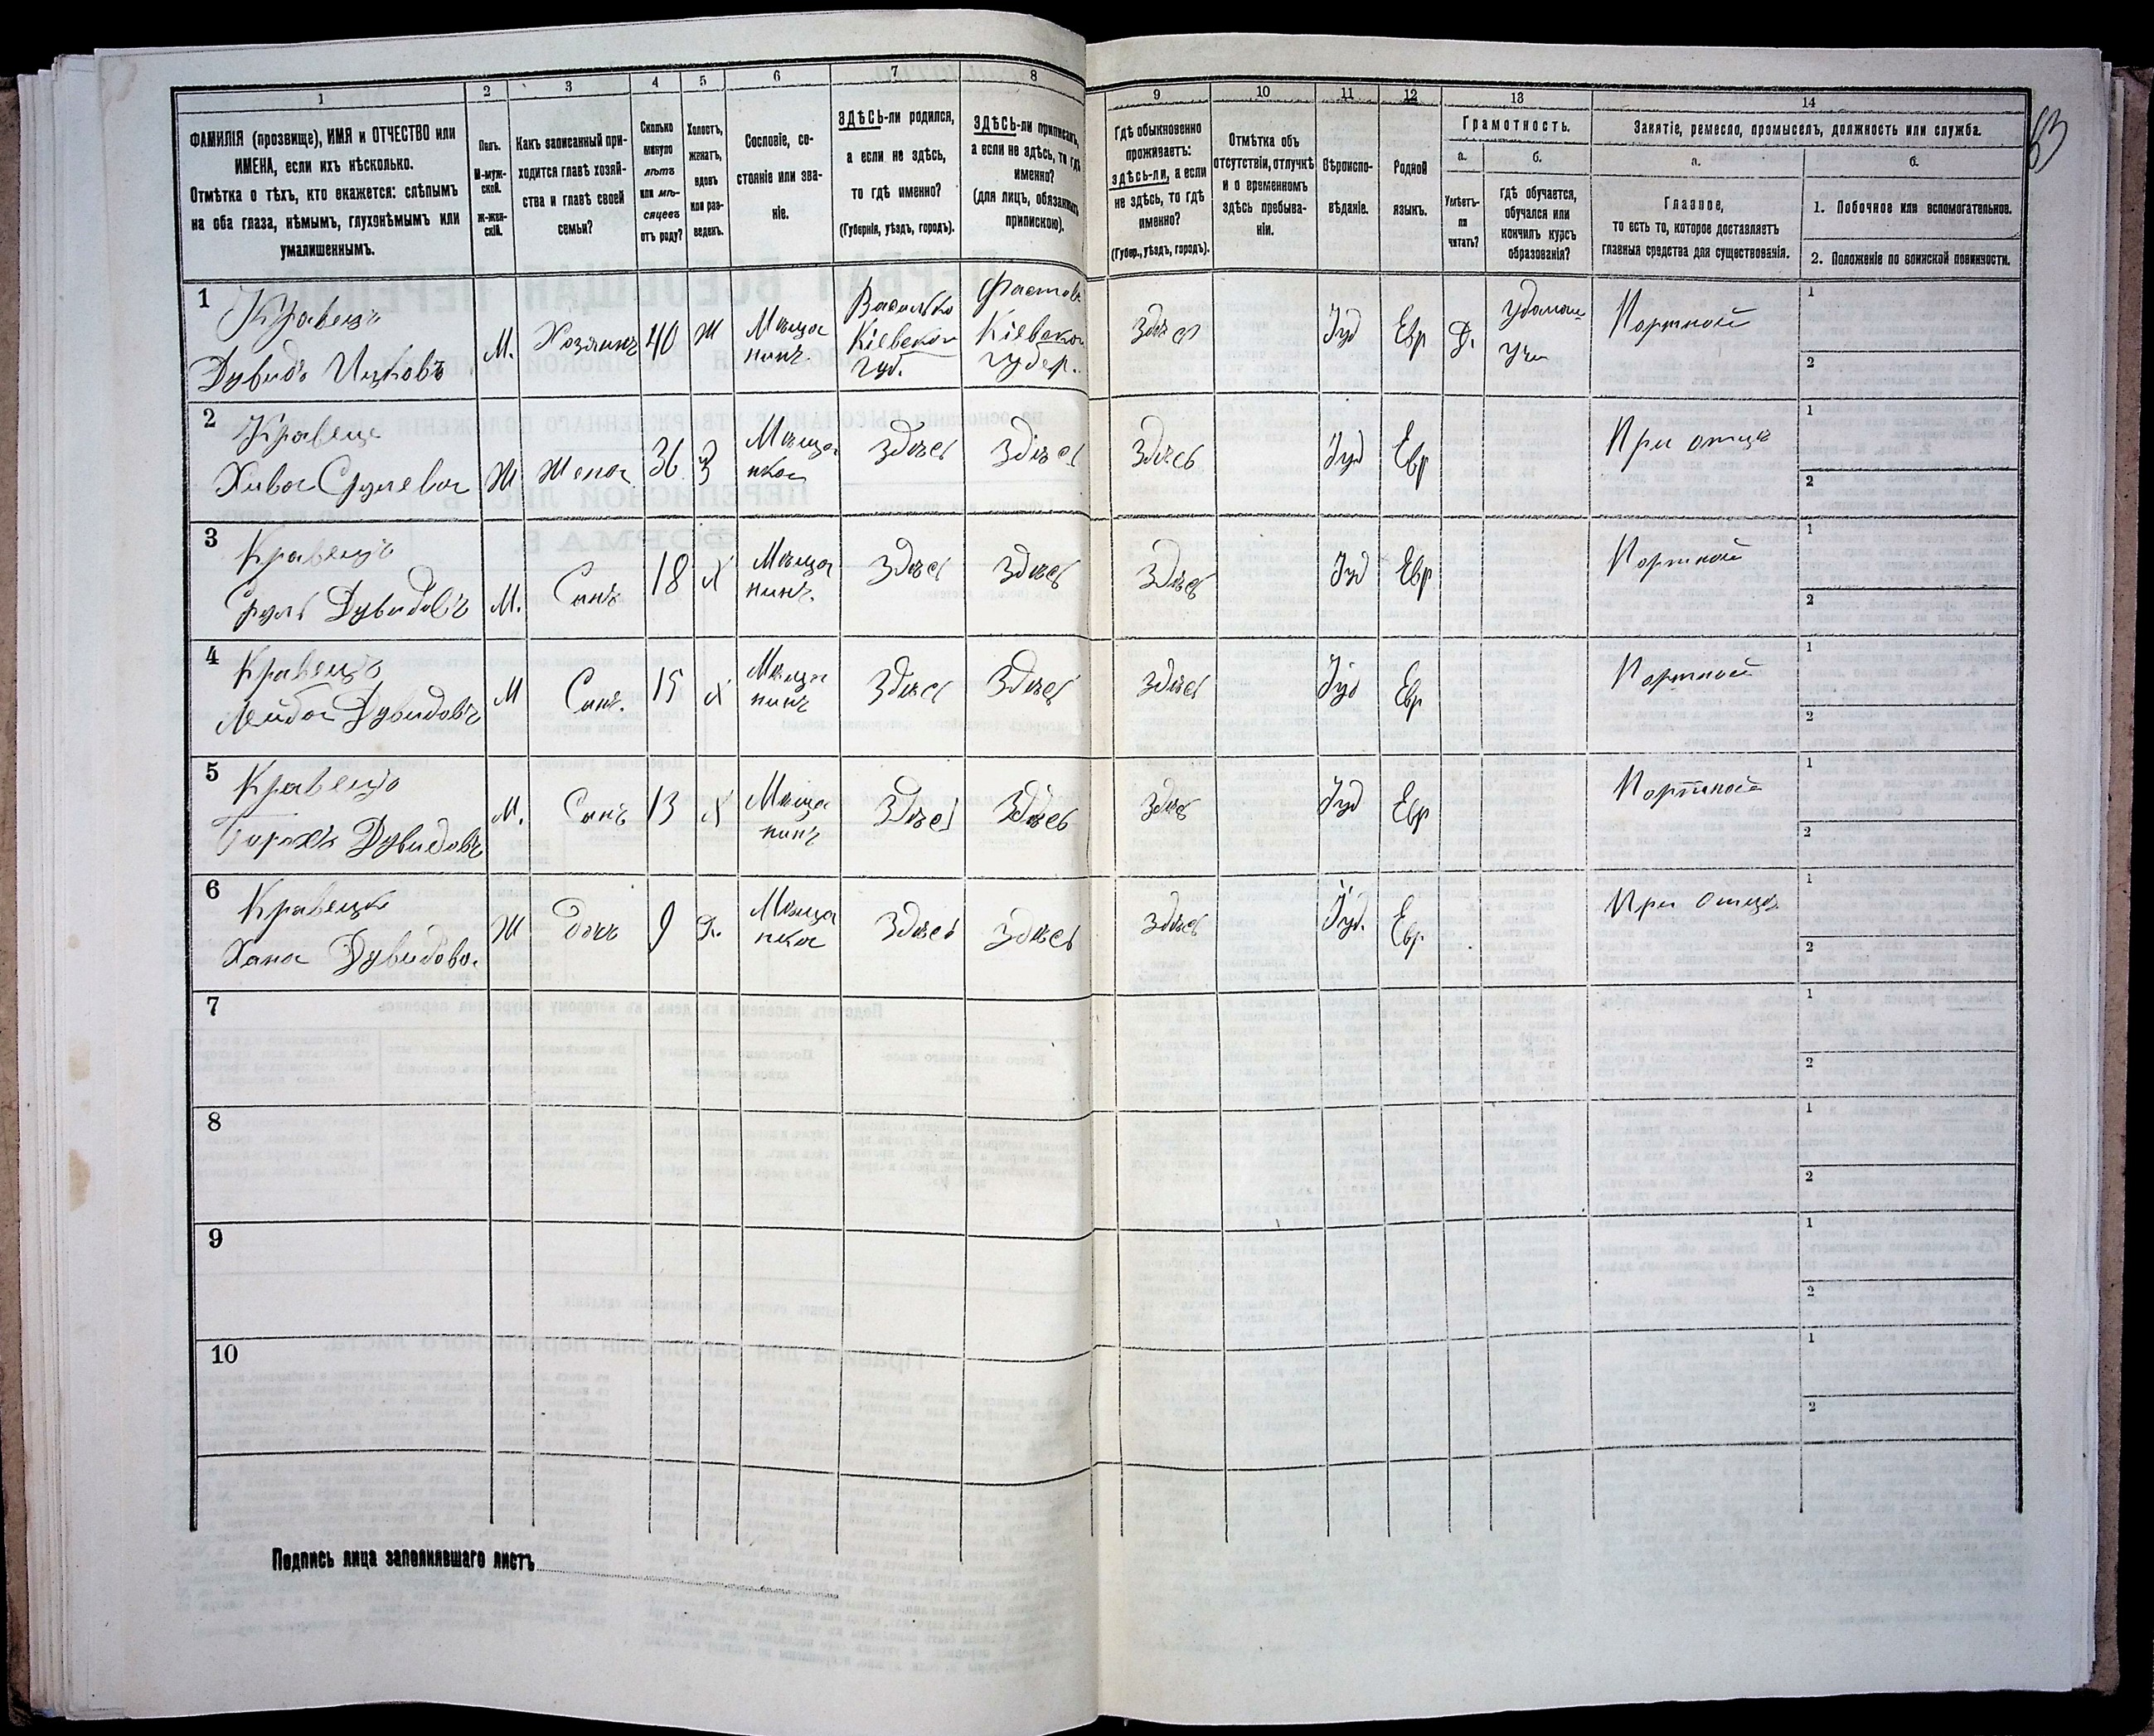 1
2
3
4
5
6
7
8
9
10
11
12
13
14
ФАМИЛІЯ (прозвище), ИМЯ и ОТЧЕСТВО или
ИМЕНА, если ихъ нѣсколько.
Отмѣтка о тѣхъ, кто окажется: слѣпымъ
на оба глаза, нѣмымъ, глухонѣмымъ или
умалишеннымъ.
Полъ.
М-муж-
ской.
Ж-жен-
скій.
Какъ записанный при-
ходится главѣ хозяй-
ства и главѣ своей
семьи?
Сколько
минуло
лѣтъ
или мѣ-
сяцевъ
отъ роду?
Холостъ,
женатъ,
вдовъ
или раз-
веденъ.
Сословіе, со-
стояніе или зва-
ніе.
ЗДѢСЬ-ли родился,
а если не здѣсь,
то гдѣ именно?
(Губернія, уѣздъ, городъ).
ЗДѢСЬ-ли приписанъ,
а если не здѣсь, то гдѣ
именно?
(для лицъ, обязанныхъ
припискою).
Гдѣ обыкновенно
проживаетъ:
здѣсь-ли, а если
не здѣсь, то гдѣ
именно?
(Губер., уѣздъ, городъ).
Отмѣтка объ
отсутствіи, отлучкѣ
и о временномъ
здѣсь пребыва-
ніи.
Вѣроиспо-
вѣданіе.
Родной
языкъ.
Грамотность.
а.
б.
Умѣетъ-
ли
читать?
Гдѣ обучается,
обучался или
кончилъ курсъ
образованія?
Занятіе, ремесло, промыселъ, должность или служба.
а.
б.
Главное,
то есть то, которое доставляетъ
главныя средства для существованія.
1. Побочное или вспомогательное.
2. Положеніе по воинской повинности.
63
1
Кравецъ
Дувидъ Ицковъ
М.
Хозяинъ
40
Ж
Мѣща
нинъ.
Василько
Кіевской
губ.
Фастовъ
Кіевской
губер.
Здѣсь
Іуд
Евр
Д.
Портной
1
2
2
Кравець
Хива Срулева
Ж
Жена
36
З
Мѣща
нка
Здѣсь
Здѣсь
Здѣсь
Іуд
Евр
При отцѣ
1
2
3
Кравецъ
Сруль Дувидовъ
М.
Сынъ
18
Х
Мѣща
нинъ.
Здѣсь
Здѣсь
Здѣсь
Іуд
Евр
Портной
1
2
4
Кравецъ
Лейба Дувидовъ
М
Сынъ.
15
Х
Мѣща
нинъ
Здѣсь
Здѣсь
Здѣсь
Іуд
Евр
Портной
1
2
5
Кравецъ
Борохъ Дувидовъ
М.
Сынъ
13
Х
Мѣща
нинъ
Здѣсь
Здѣсь
Здѣсь
Іуд
Евр
Портной
1
2
6
Кравецъ
Хана Дувидова
Ж
Дочь
9
Д.
Мѣща
нка
Здѣсь
Здѣсь
Здѣсь
Іуд.
Евр
При отцѣ
1
2
7
1
2
8
1
2
9
1
2
10
1
2
Подпись лица заполнявшаго листъ